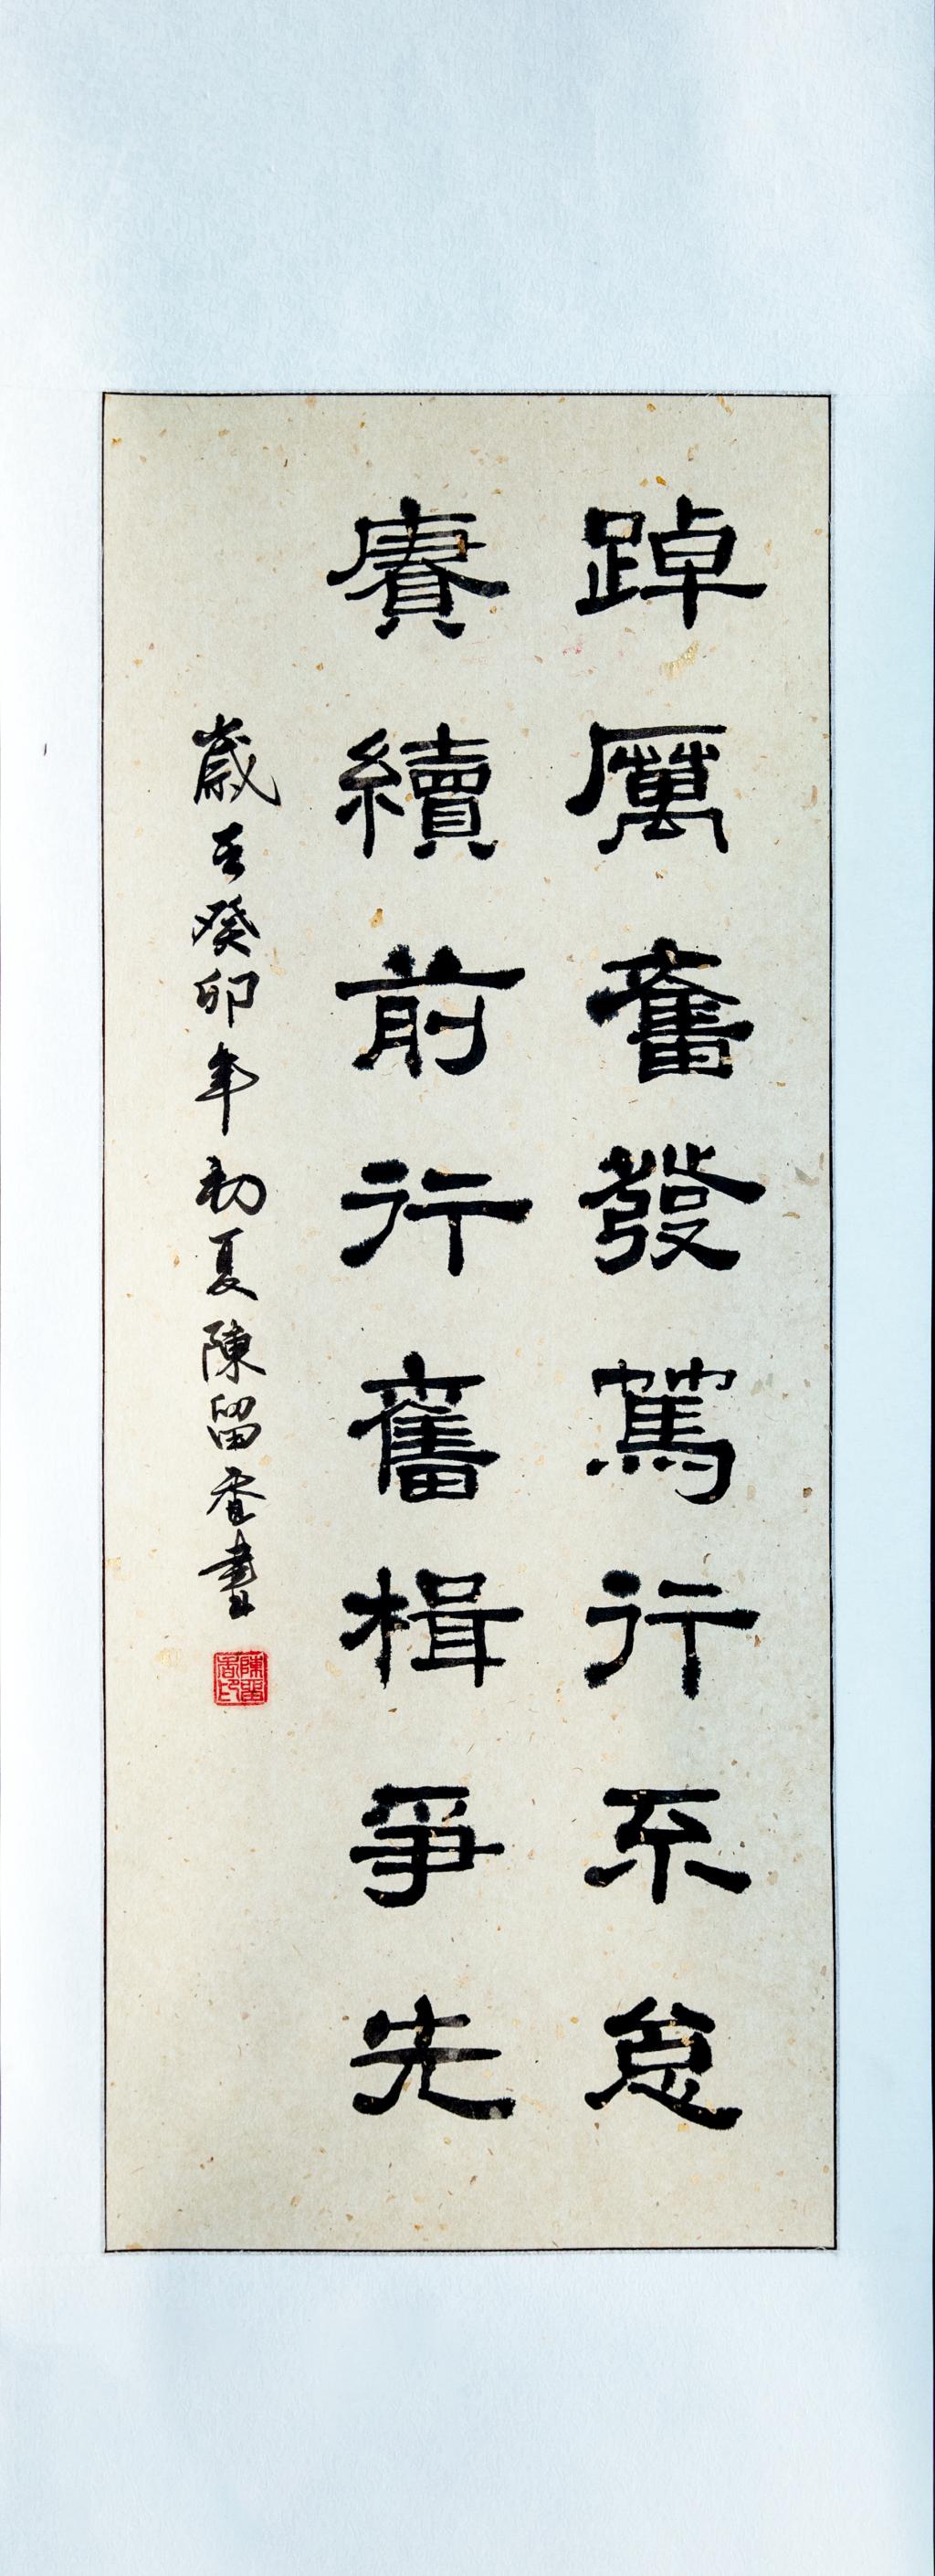 踔厲奮發篤行不怠
賡續前行舊楫爭先
歲在癸卯年初夏陳留香書
陳留香印